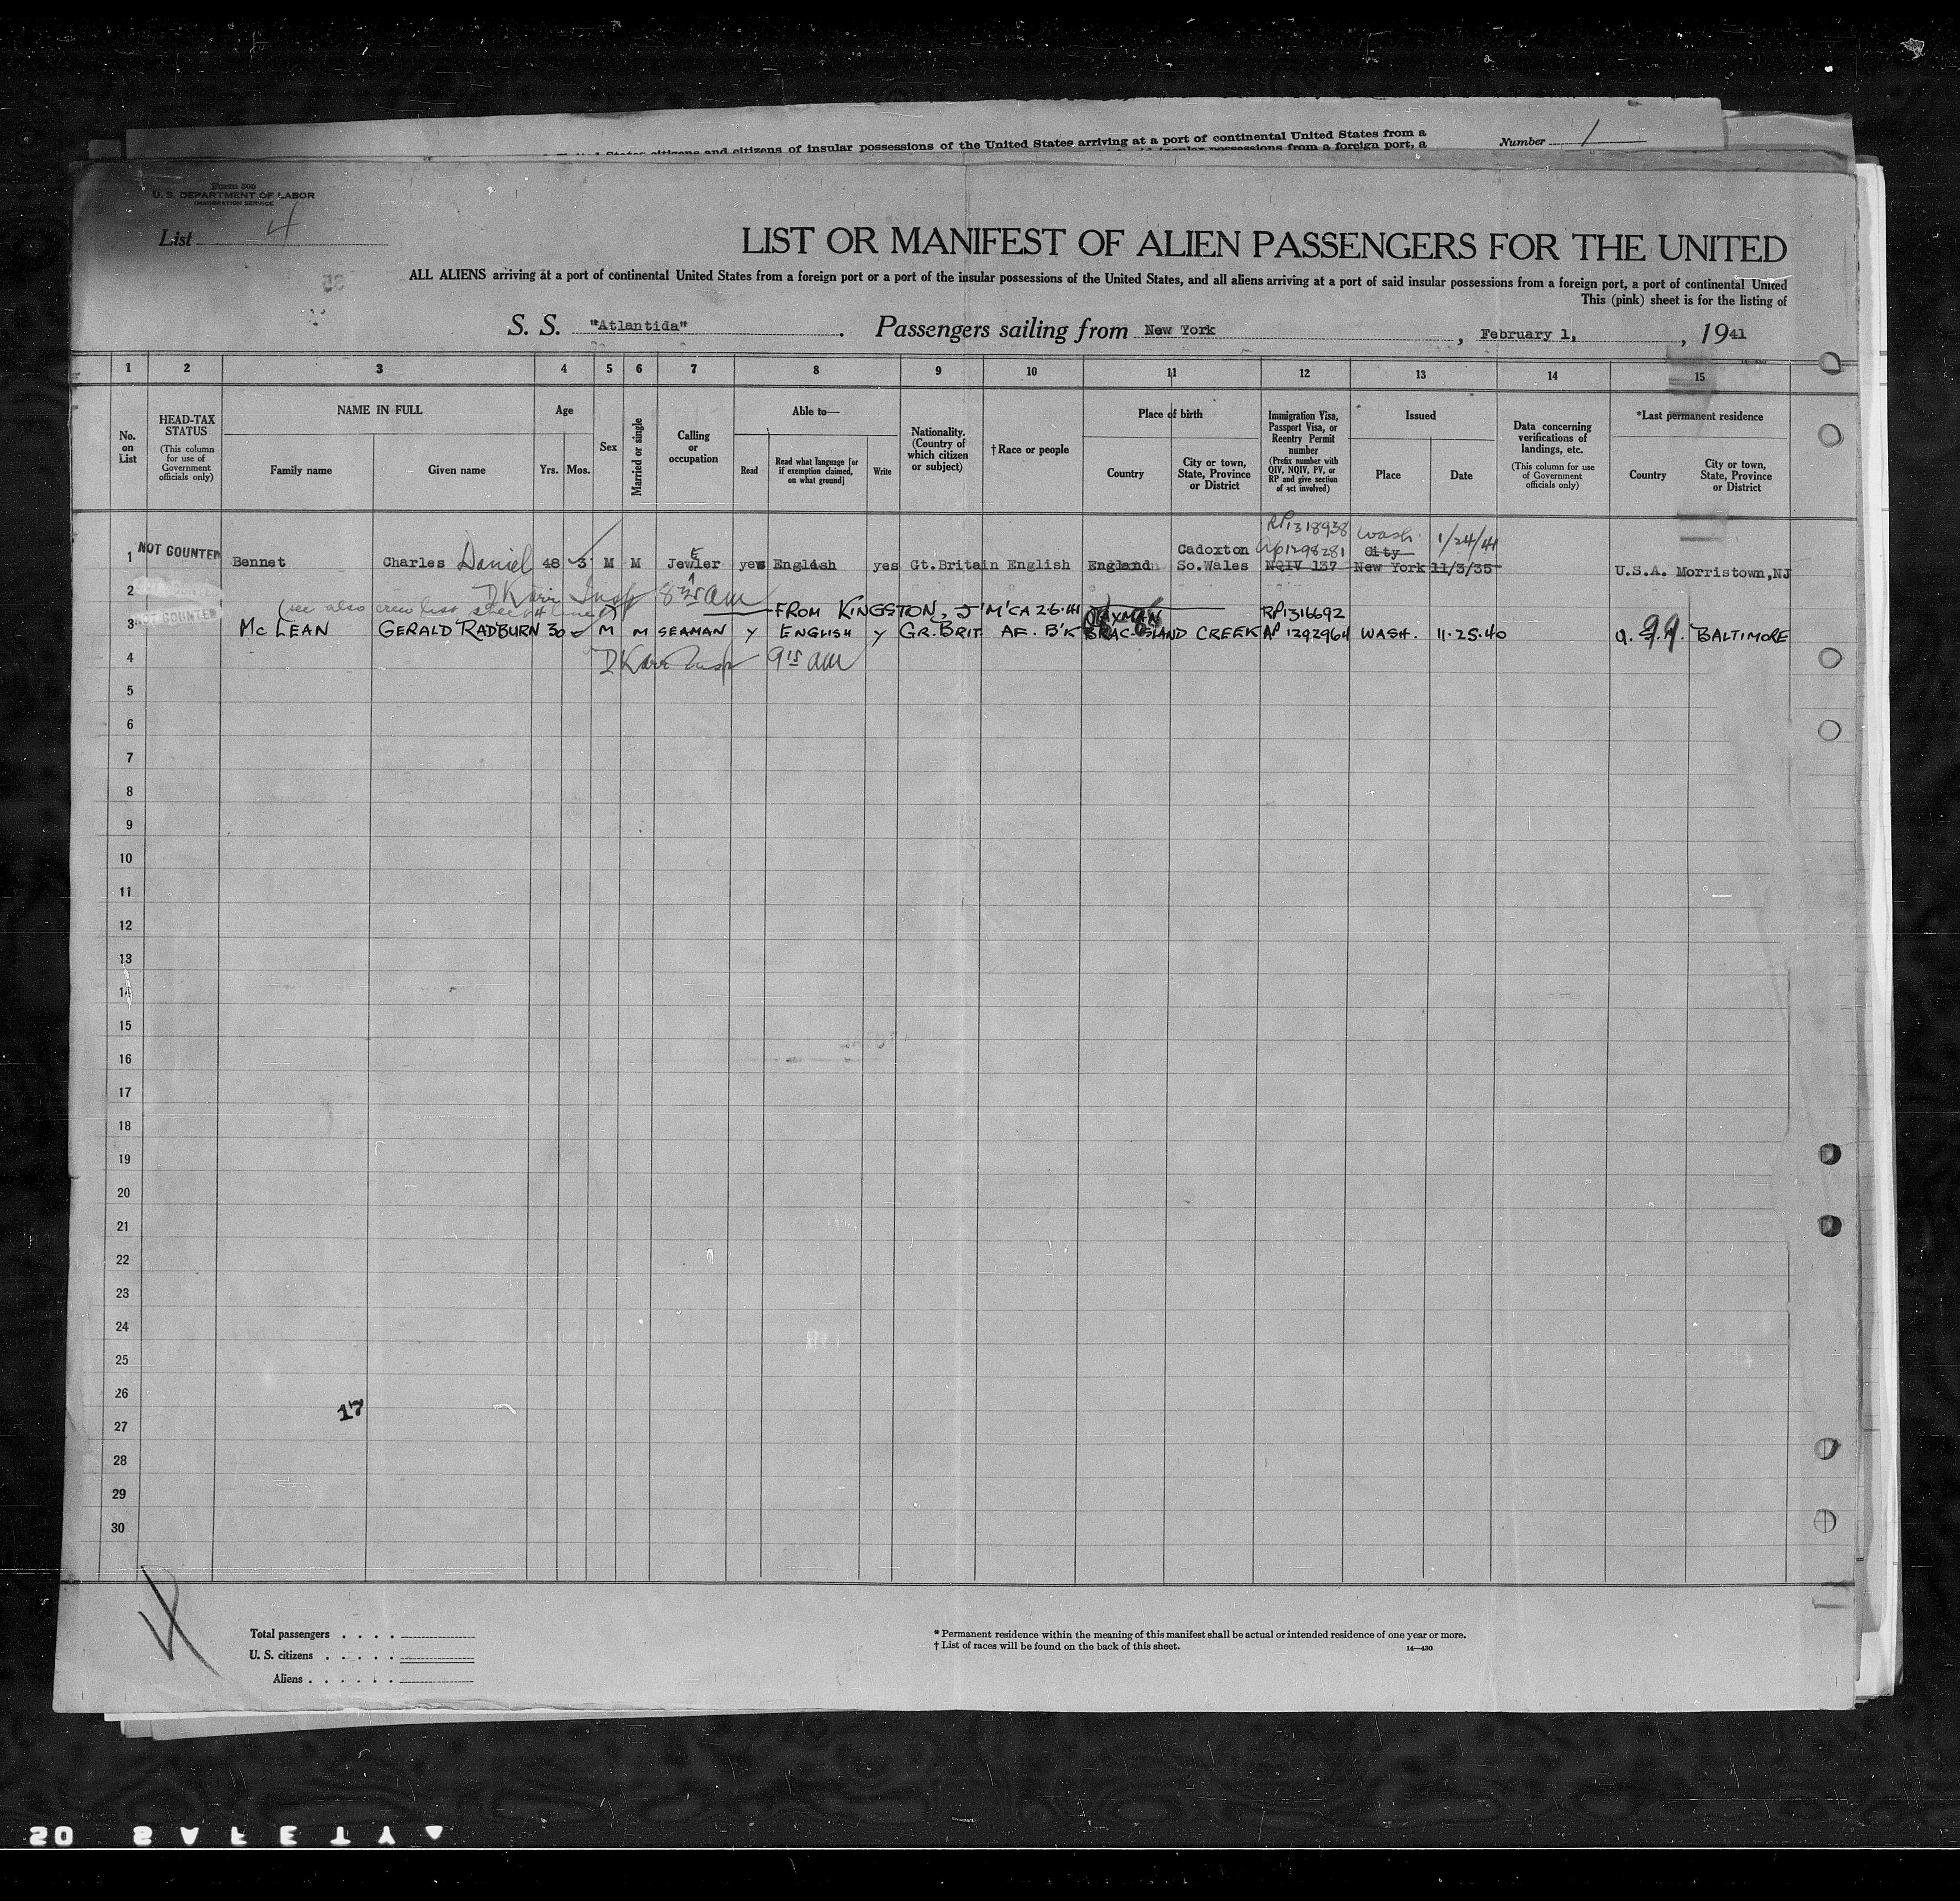 citizens and citizens of insular possessions of the United States arriving at a port of continental United States from a
Number 1
insular possessions from a foreign port, a
Form 500
U. S. DEPARTMENT OF LABOR
IMMIGRATION SERVICE
List 4
LIST OR MANIFEST OF ALIEN PASSENGERS FOR THE UNITED
ALL ALIENS arriving at a port of continental United States from a foreign port or a port of the insular possessions of the United States, and all aliens arriving at a port of said insular possessions from a foreign port, a port of continental United
This (pink) sheet is for the listing of
S. S. "Atlantida". Passengers sailing from New York, February 1, 1941
1 2 3 4 5 6 7 8 9 10 11 12 13 14 15
No. on List
HEAD-TAX STATUS
(This column for use of Government officials only)
NAME IN FULL
Family name
Given name
Age
Yrs.
Mos.
Sex
Married or single
Calling or occupation
Able to—
Read
Read what language [or if exemption claimed, on what ground]
Write
Nationality. (Country of which citizen or subject)
†Race or people
Place of birth
Country
City or town, State, Province or District
Immigration Visa, Passport Visa, or Reentry Permit number
(Prefix number with QIV, NQIV, PV, or RP and give section of act involved)
Issued
Place
Date
Data concerning verifications of landings, etc.
(This column for use of Government officials only)
*Last permanent residence
Country
City or town, State, Province or District
RP1318938 Wash. 1/24/41
Cadoxton Ap1298281 City
1 NOT COUNTED Bennet Charles Daniel 48 3 M M Jeweler yes English yes Gt.Britain English England So.Wales NQIV 137 New York 11/3/35 U.S.A. Morristown,NJ
2 D Karr Insp 8 35 am
(see also crew list sheet 4 line 7)
FROM KINGSTON, J'M'CA 2·6·41 CAYMAN RP1316692
3 NOT COUNTED McLEAN GERALD RADBURN 30 M M SEAMAN Y ENGLISH Y GR.BRIT AF. B'K BRAC-ISLAND CREEK AP 1292964 WASH. 11·25·40 BALTIMORE
4 D Karr Insp 9 15 am
5
6
7
8
9
10
11
12
13
14
15
16
17
18
19
20
21
22
23
24
25
26
17
27
28
29
30
4
Total passengers
U. S. citizens
Aliens
* Permanent residence within the meaning of this manifest shall be actual or intended residence of one year or more.
† List of races will be found on the back of this sheet.
14—430
SAFETY